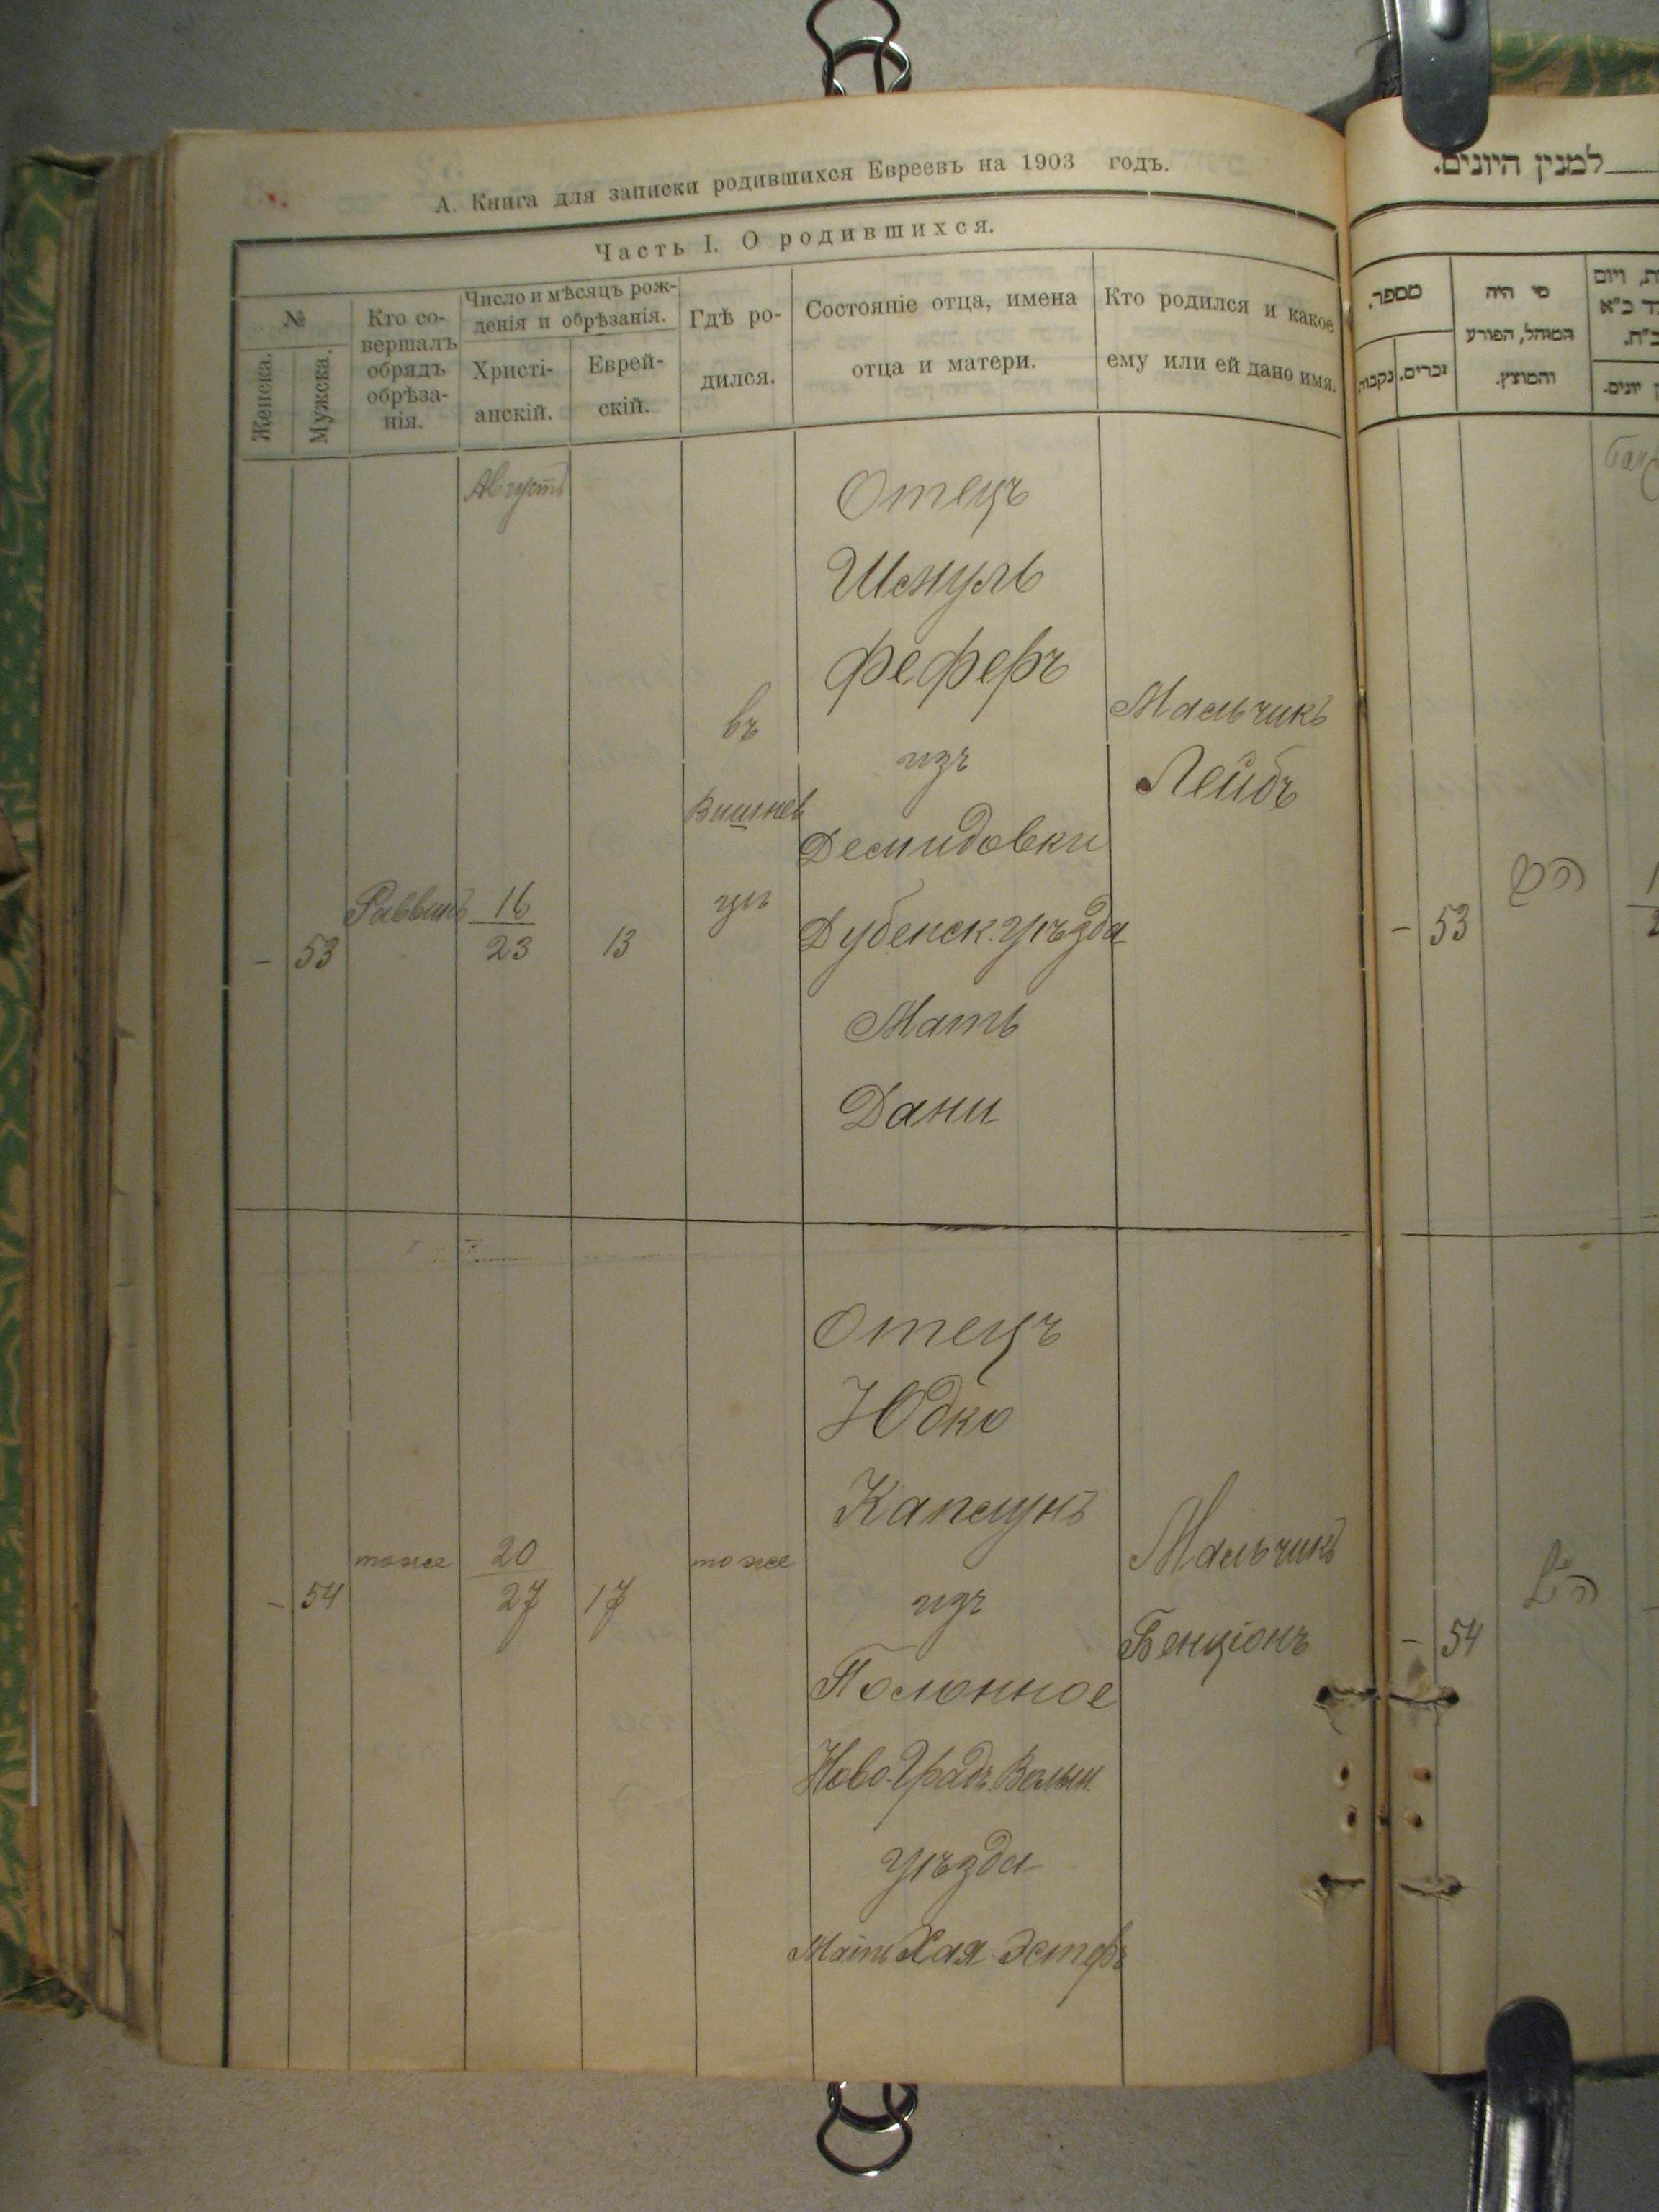 А. Книга для записки родившихся Евреевъ на 1903 годъ.
Часть I. О родившихся.
№
Женска.
Мужска.
Кто со-
вершалъ
обрядъ
обрѣза-
нія.
Число и мѣсяцъ рож-
денія и обрѣзанія.
Христі-
анскій.
Еврей-
скій.
Гдѣ ро-
дился.
Состояніе отца, имена
отца и матери.
Кто родился и какое
ему или ей дано имя.
Августъ
–
53
Раввинъ
16
23
13
въ
Вишнев
цѣ
Отецъ
Шмуль
Феферъ
изъ
Демидовки
Дубенск. уѣзда
Мать
Дани
Мальчикъ
Лейбъ
–
54
тоже
20
27
17
тоже
Отецъ
Юдко
Каплунъ
изъ
Полонное
Ново-Градъ Волын.
уѣзда
Мать Хая-Эстеръ
Мальчикъ
Бенціонъ
למנין היונים.
מספר.
זכרים.
נקבות
מי היה
המוהל, הפורע
והמוצץ.
–
53
–
54